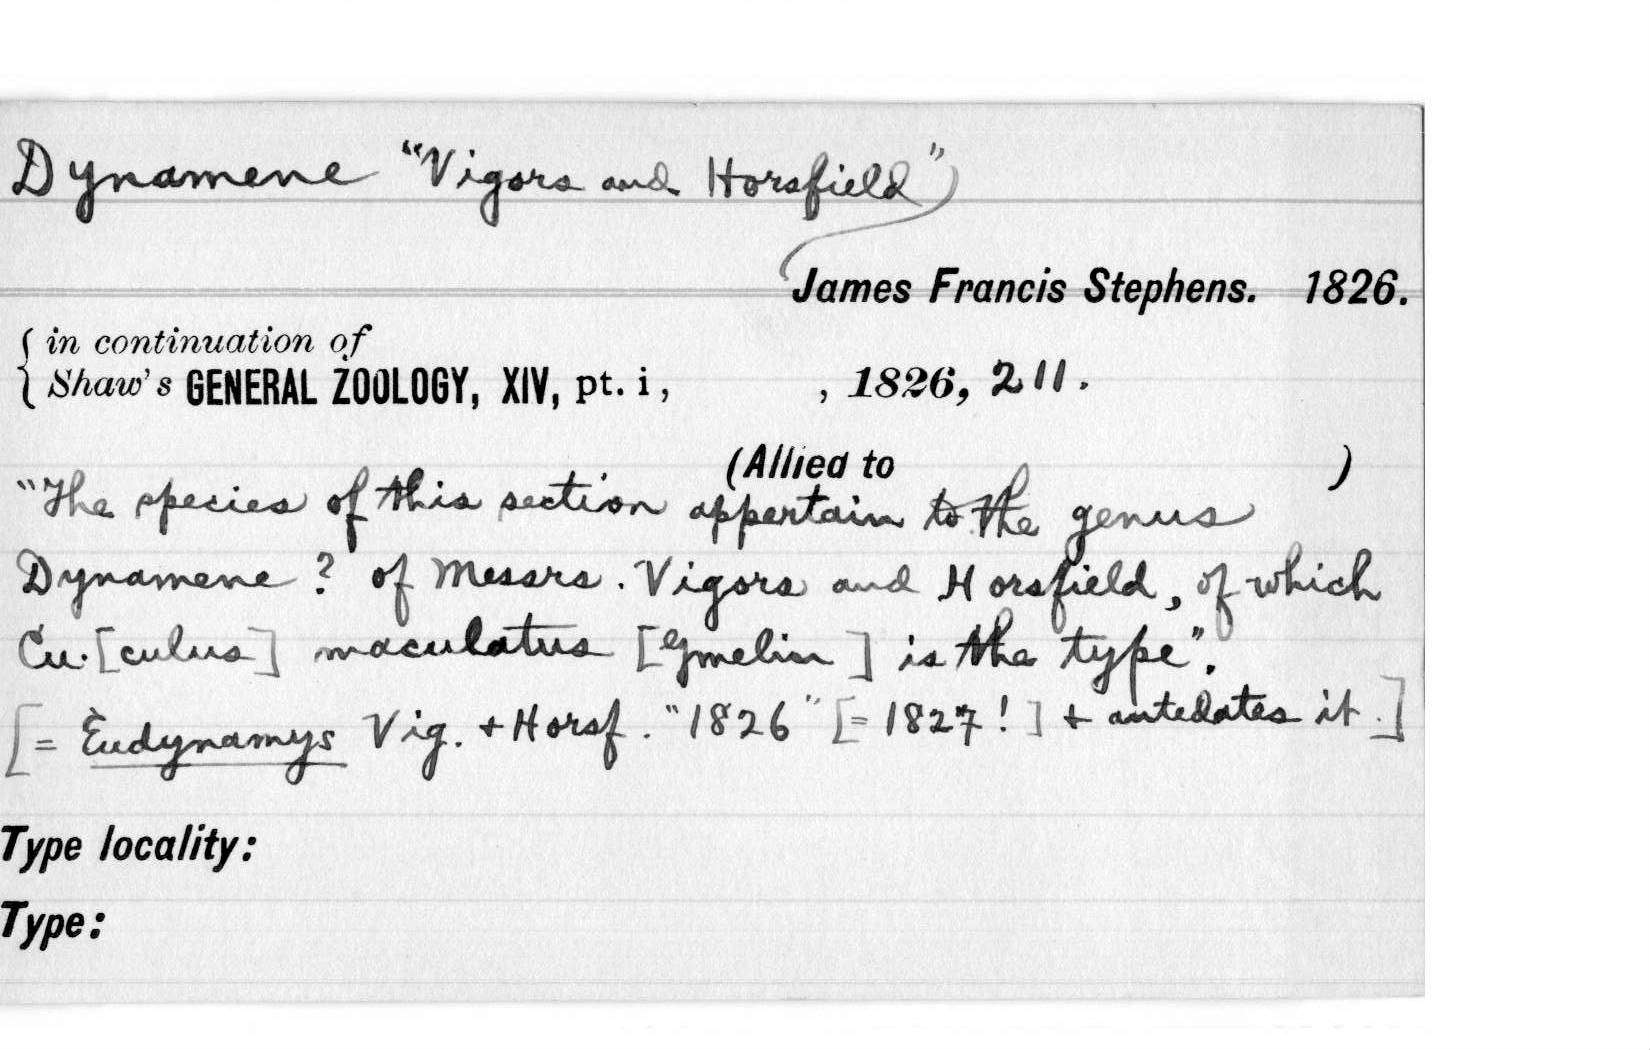 Dynamene "Vigors and Horsfield"
James Francis Stephens. 1826.
in continuation of
Shaw's GENERAL ZOOLOGY, XIV, pt. i, , 1826, 211.
(Allied to )
"The species of this section appertain to the genus
Dynamene ? of Messrs. Vigors and Horsfield, of which
Cu.[culus] maculatus [Gmelin] is the type".
[= Eudynamys Vig. + Horsf. "1826" [= 1827!] + antedates it.]
Type locality:
Type: